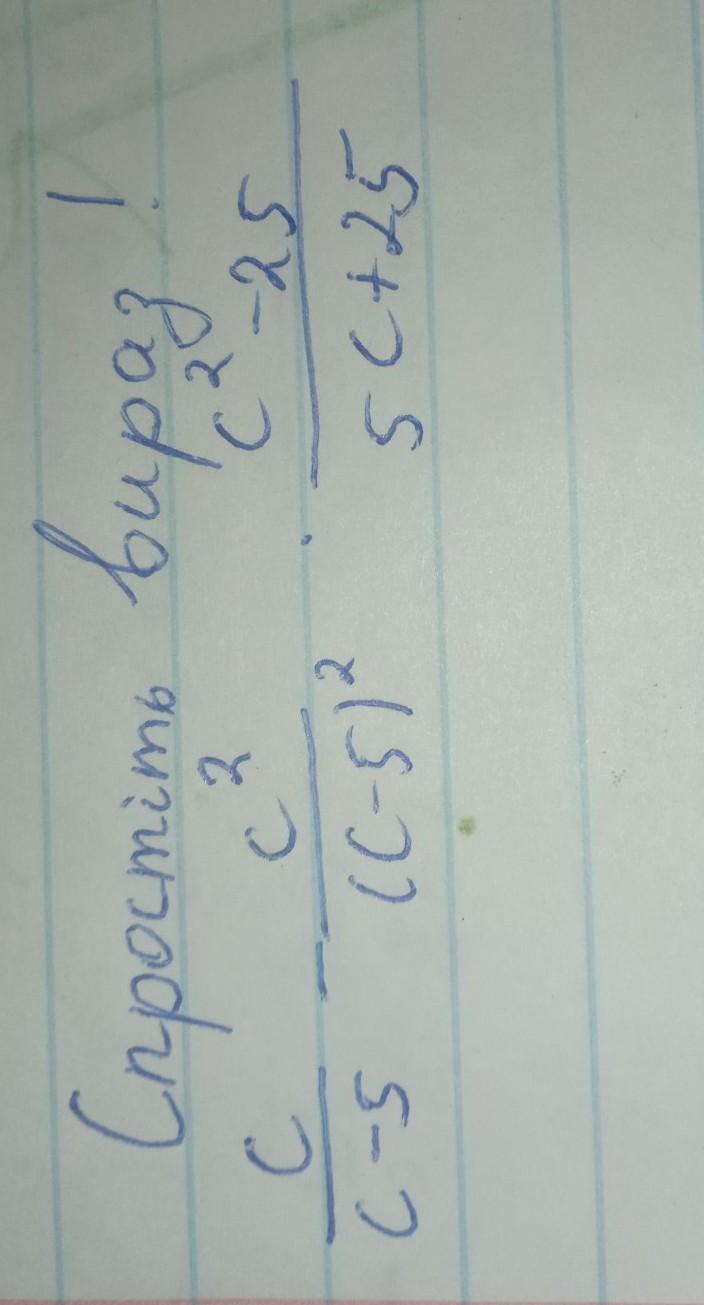 Спростіть вираз!
c/(c-5) - c²/(c-5)² · (c²-25)/(5c+25)